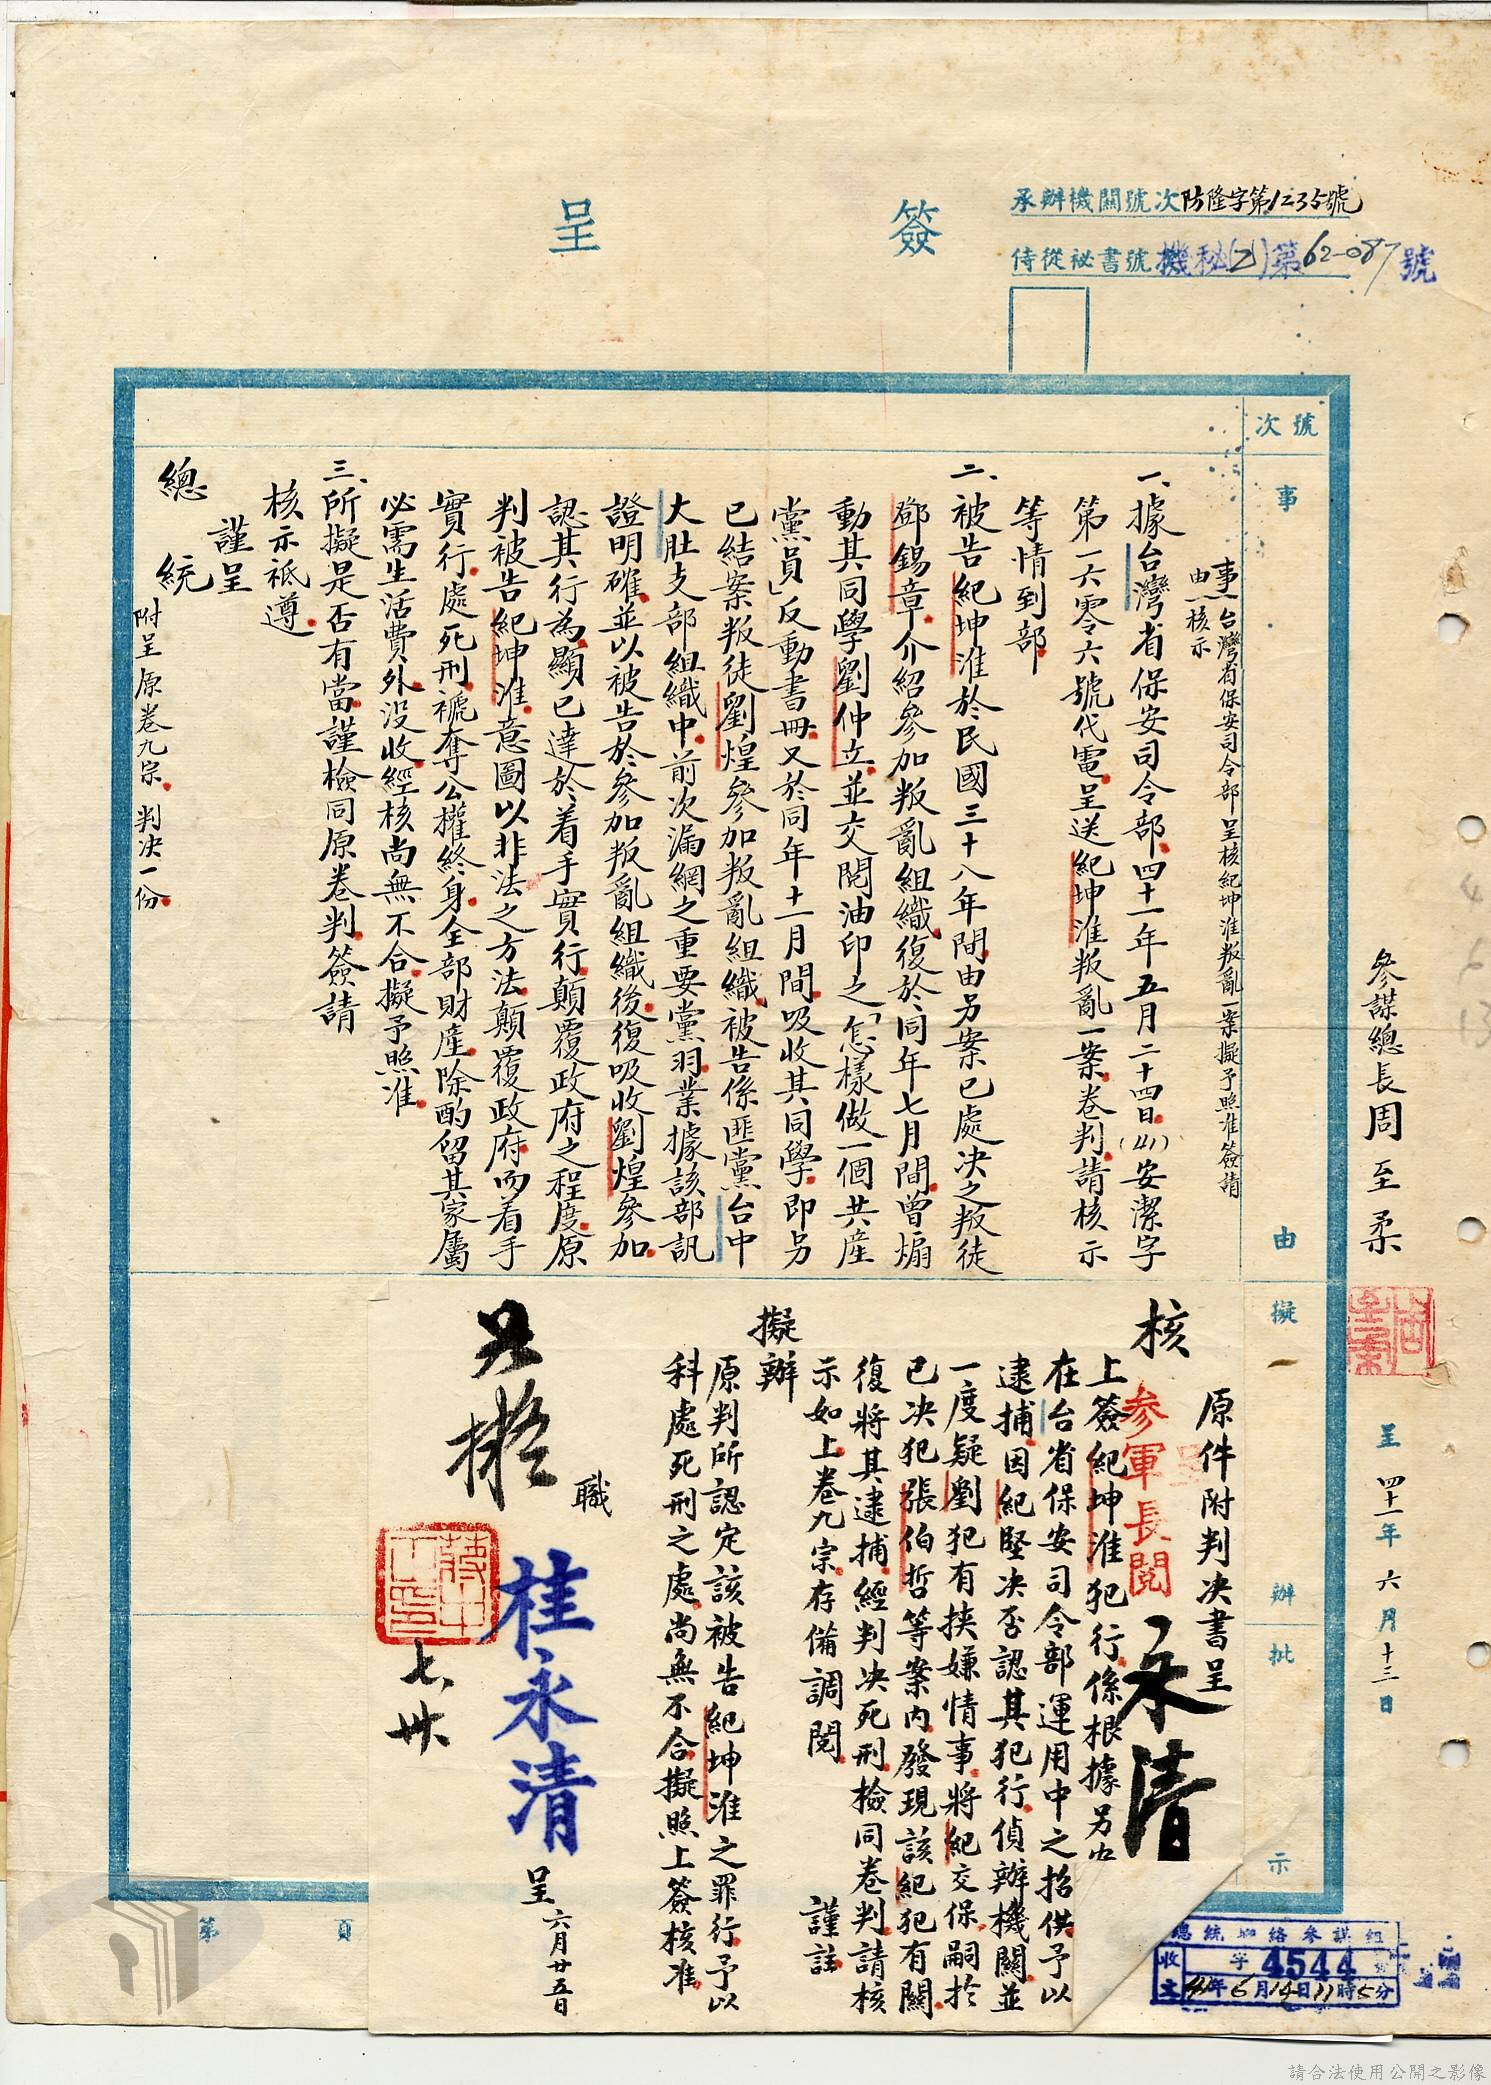 簽呈
承辦機關號次防隆字第1235號
侍從祕書號機秘(乙)第62-087號
號次
事由
擬辦
批示
參謀總長周至柔
呈四十一年六月十三日
事由 台灣省保安司令部呈核紀坤淮叛亂一案擬予照准簽請
核示
一、據台灣省保安司令部四十一年五月二十四日(41)安潔字
第一六零六號代電呈送紀坤淮叛亂一案卷判請核示
等情到部
二、被告紀坤淮於民國三十八年間由另案已處決之叛徒
鄧錫章介紹參加叛亂組織復於同年七月間曾煽
動其同學劉仲立並交閱油印之「怎樣做一個共產
黨員」反動書冊又於同年十一月間吸收其同學即另
已結案叛徒劉煌參加叛亂組織被告係匪黨台中
大肚支部組織中前次漏網之重要黨羽業據該部訊
證明確並以被告於參加叛亂組織後復吸收劉煌參加
認其行為顯已達於着手實行顛覆政府之程度原
判被告紀坤淮意圖以非法之方法顛覆政府而着手
實行處死刑褫奪公權終身全部財產除酌留其家屬
必需生活費外沒收經核尚無不合擬予照准
三、所擬是否有當謹檢同原卷判簽請
核示祗遵
謹呈
總統
附呈原卷九宗判決一份
原件附判決書呈
核
參軍長閱
永清
上簽紀坤淮犯行係根據另案
在台省保安司令部運用中之招供予以
逮捕因紀堅決否認其犯行偵辦機關並
一度疑劉犯有挾嫌情事將紀交保嗣於
已決犯張伯哲等案內發現該紀犯有關
復將其逮捕經判決死刑檢同卷判請核
示如上卷九宗存備調閱
謹註
擬辦
原判所認定該被告紀坤淮之罪行予以
科處死刑之處尚無不合擬照上簽核准
職
桂永清
呈六月廿五日
如擬
蔣中正印
七卅
第頁
總統聯絡參謀組
收文
字4544號
41年6月14日11時5分
4 6 13
請合法使用公開之影像